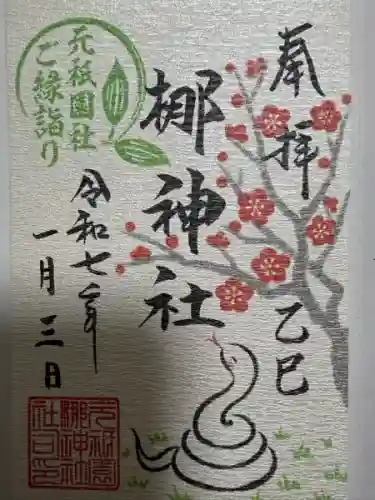 奉拝
乙巳
梛神社
令和七年
一月三日
元祇園社
ご縁詣り
元祇園
梛神社
社之印